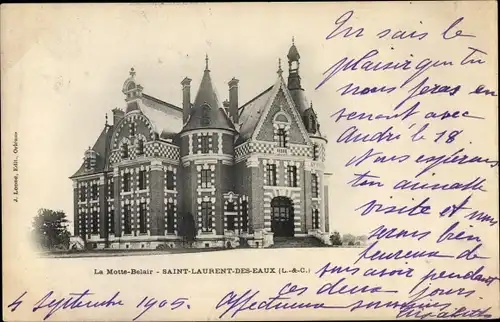 J. Leroux, Edit., Orléans
Tu sais le
plaisir que tu
nous feras en
venant avec
André le 18
Nous espérons
ton aimable
visite et nous
nous bien
heureux de
vous avoir pendant
ces deux jours.
La Motte-Belair - SAINT-LAURENT-DES-EAUX (L.-&-C.)
4 Septembre 1905. Affectueux